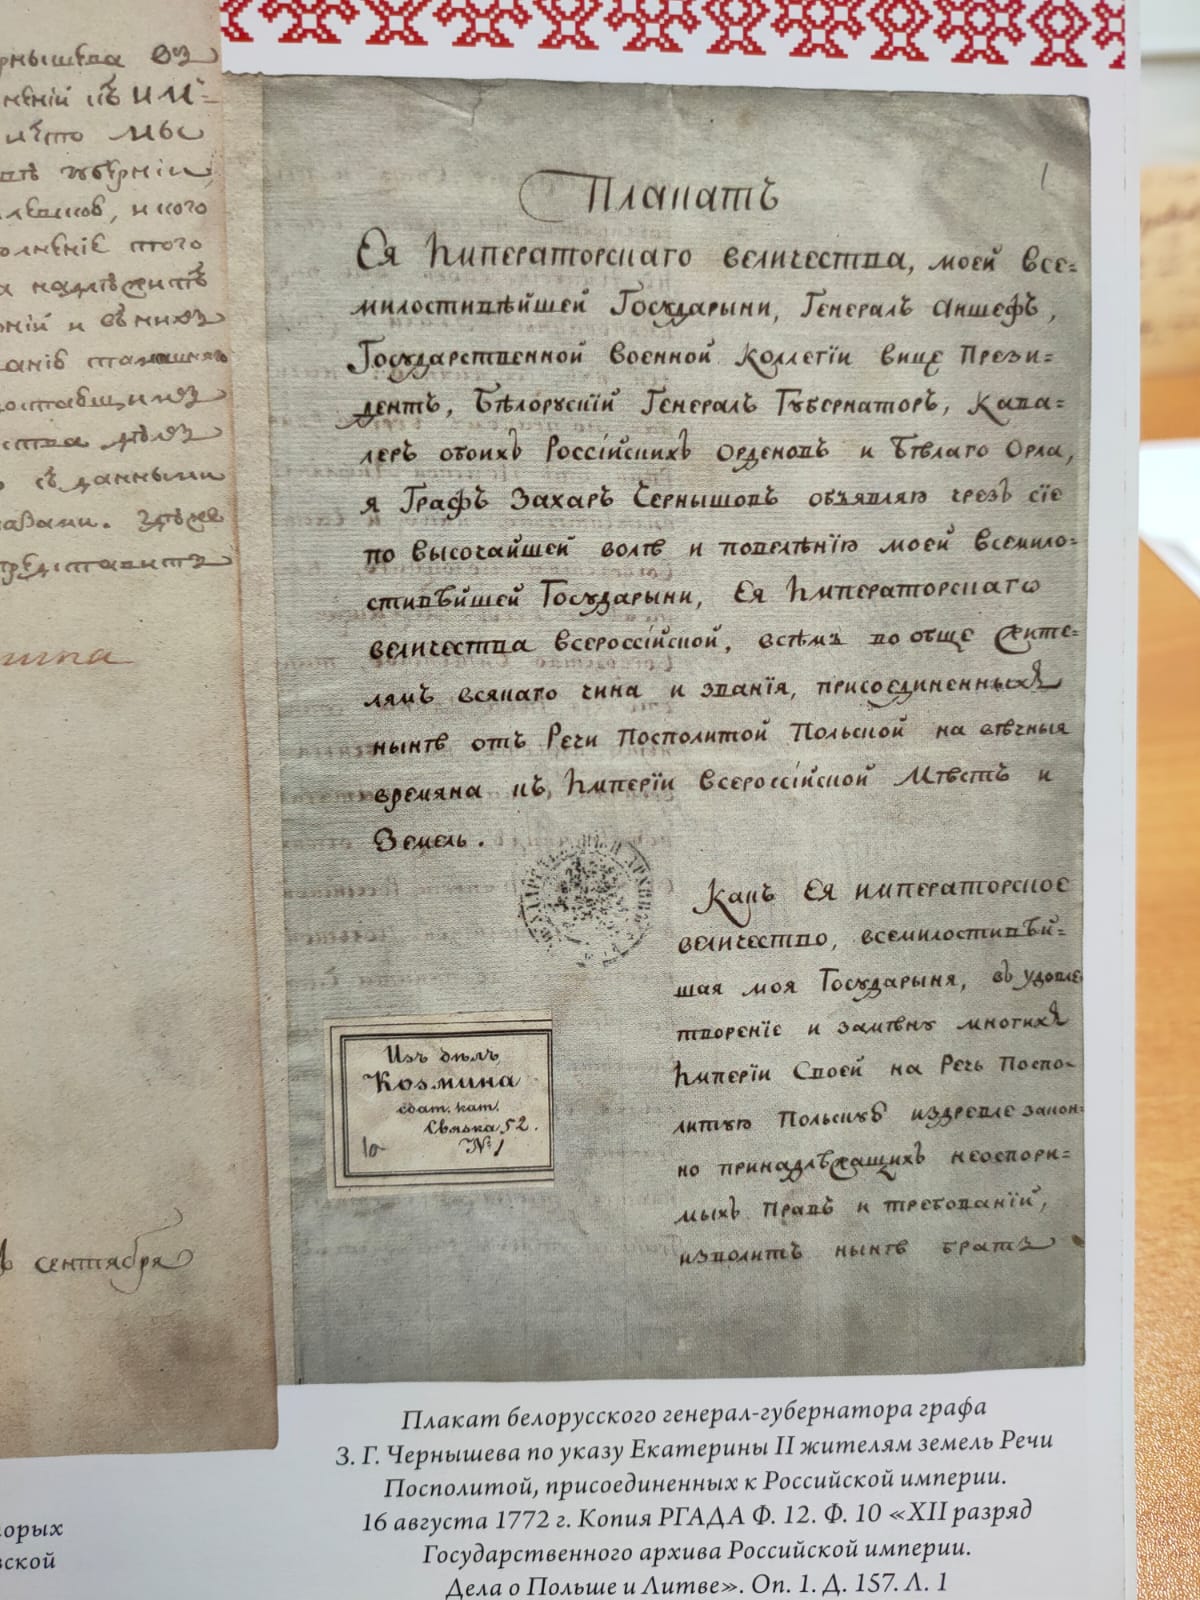 рнышева
нении
мы
губернии,
, и кого
того
надлежитъ
ний и въ нихъ
съ данными
сентября
Плакатъ
Ея Императорскаго величества, моей все=
милостивѣйшей Государыни, Генералъ Аншефъ,
Государственной военной Коллегїи вице Прези=
дентъ, Бѣлорускїй Генералъ Губернаторъ, Кава=
леръ обоихъ Россїйскихъ Орденовъ и Бѣлаго Орла,
я Графъ Захаръ Чернышовъ объявляю чрезъ сїе
по высочайшей волѣ и повелѣнїю моей всемило=
стивѣйшей Государыни, Ея Императорскаго
величества всероссїйской, всѣмъ вообще жите=
лямъ всякаго чина и званїя, присоединенныхъ
нынѣ отъ Речи Посполитой Польской на вѣчныя
времяна къ Имперїи всероссїйской Мѣстъ и
Земель.
Какъ Ея императорское
величество, всемилостивѣй=
шая моя Государыня, въ удовле
творенїе и замѣну многихъ
Имперїи Своей на Речь Поспо=
литую Польскую издревле закон=
но принадлѣжащихъ неоспори=
мыхъ правъ и требованїй,
изволитъ нынѣ братъ
Изъ дѣлъ
Козмина
сдат. кат.
Связка 52.
№ 1
1а
Плакат белорусского генерал-губернатора графа
З. Г. Чернышева по указу Екатерины II жителям земель Речи
Посполитой, присоединенных к Российской империи.
16 августа 1772 г. Копия РГАДА Ф. 12. Ф. 10 «XII разряд
Государственного архива Российской империи.
Дела о Польше и Литве». Оп. 1. Д. 157. Л. 1
орых
вской